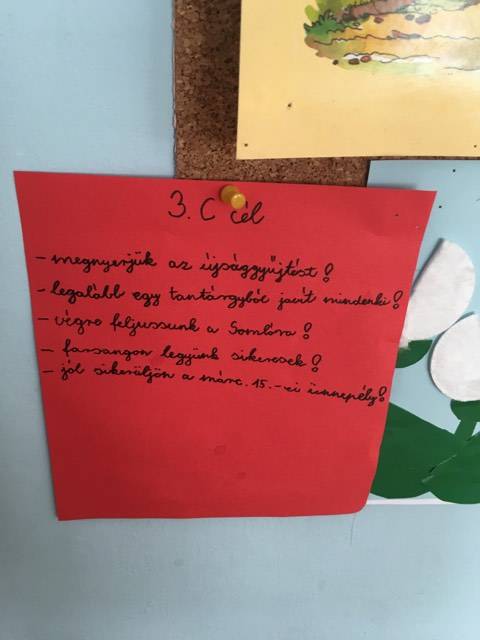 3. C cél
- megnyerjük az újsággyűjtést!
- legalább egy tantárgyból javít mindenki!
- végre feljussunk a Somlóra!
- farsangon legyünk sikeresek!
- jól sikerüljön a márc. 15.-ei ünnepély!